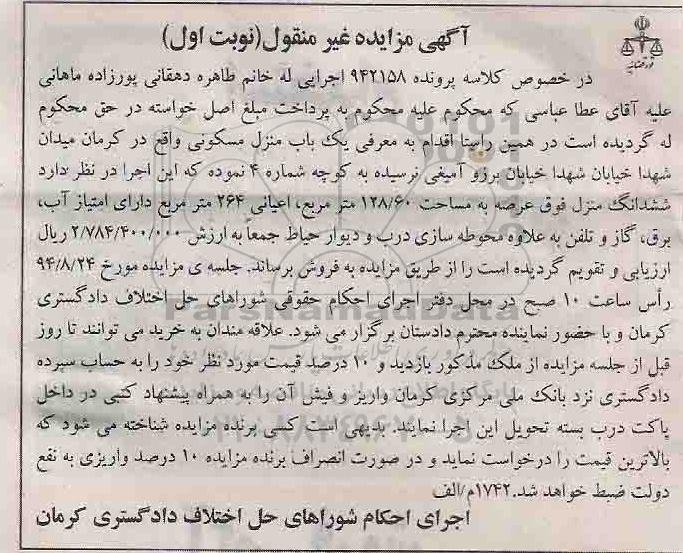 آگهی مزایده غیر منقول(نوبت اول)
در خصوص کلاسه پرونده ۹۴۲۱۵۸ اجرایی له خانم طاهره دهقانی پورزاده ماهانی
علیه آقای عطا عباسی که محکوم علیه محکوم به پرداخت مبلغ اصل خواسته در حق محکوم
له گردیده است در همین راستا اقدام به معرفی یک باب منزل مسکونی واقع در کرمان میدان
شهدا خیابان شهدا خیابان برزو آمیغی نرسیده به کوچه شماره ۴ نموده که این اجرا در نظر دارد
ششدانگ منزل فوق عرصه به مساحت ۱۲۸/۶۰ متر مربع، اعیانی ۲۶۴ متر مربع دارای امتیاز آب،
برق، گاز و تلفن به علاوه محوطه سازی درب و دیوار حیاط جمعاً به ارزش ۲/۷۸۴/۴۰۰/۰۰۰ ریال
ارزیابی و تقویم گردیده است را از طریق مزایده به فروش برساند. جلسه ی مزایده مورخ ۹۴/۸/۲۴
رأس ساعت ۱۰ صبح در محل دفتر اجرای احکام حقوقی شوراهای حل اختلاف دادگستری
کرمان و با حضور نماینده محترم دادستان برگزار می شود. علاقه مندان به خرید می توانند تا روز
قبل از جلسه مزایده از ملک مذکور بازدید و ۱۰ درصد قیمت مورد نظر خود را به حساب سپرده
دادگستری نزد بانک ملی مرکزی کرمان واریز و فیش آن را به همراه پیشنهاد کتبی در داخل
پاکت درب بسته تحویل این اجرا نمایند. بدیهی است کسی برنده مزایده شناخته می شود که
بالاترین قیمت را درخواست نماید و در صورت انصراف برنده مزایده ۱۰ درصد واریزی به نفع
دولت ضبط خواهد شد.۱۷۴۲م/الف
اجرای احکام شوراهای حل اختلاف دادگستری کرمان
ParsNamadData